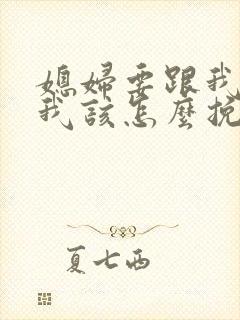 媳婦要跟我
我該怎麼挽
夏七西